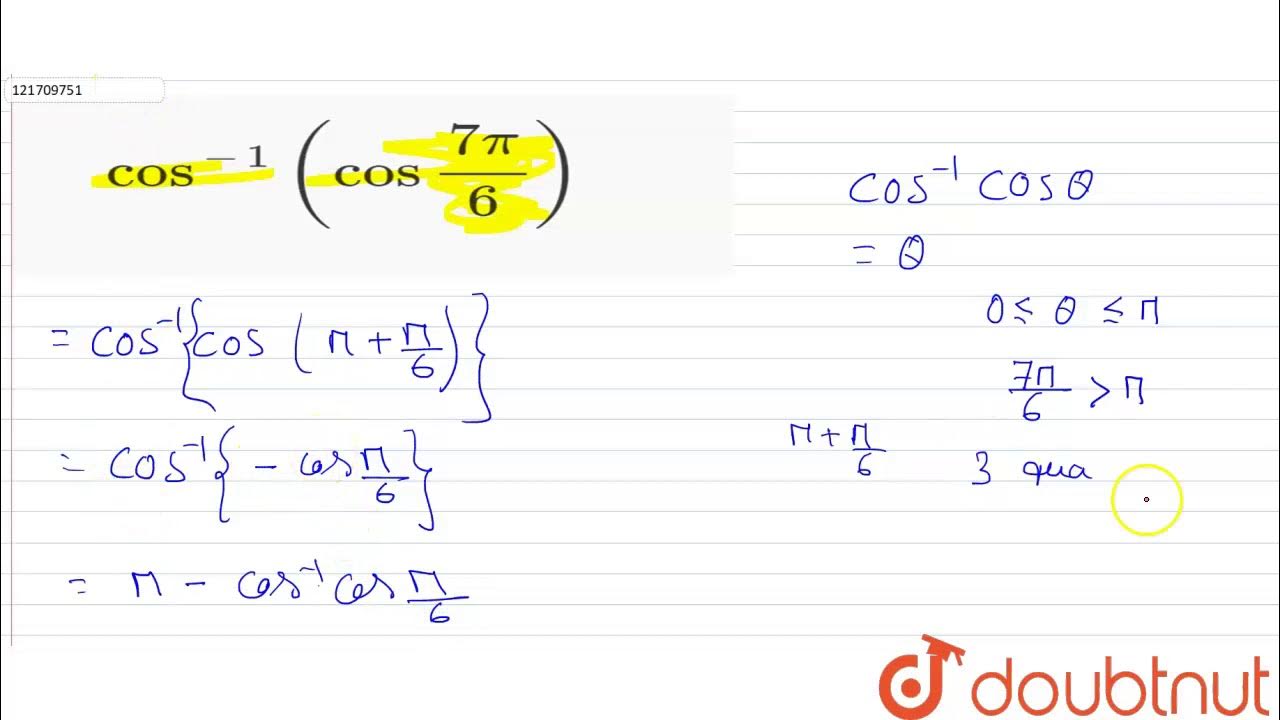 121709751
cos⁻¹ (cos 7π/6)
= cos⁻¹{cos (π + π/6)}
= cos⁻¹{- cos π/6}
= π - cos⁻¹ cos π/6
cos⁻¹ cos θ
= θ
0 ≤ θ ≤ π
7π/6 > π
π + π/6
3 qua
doubtnut